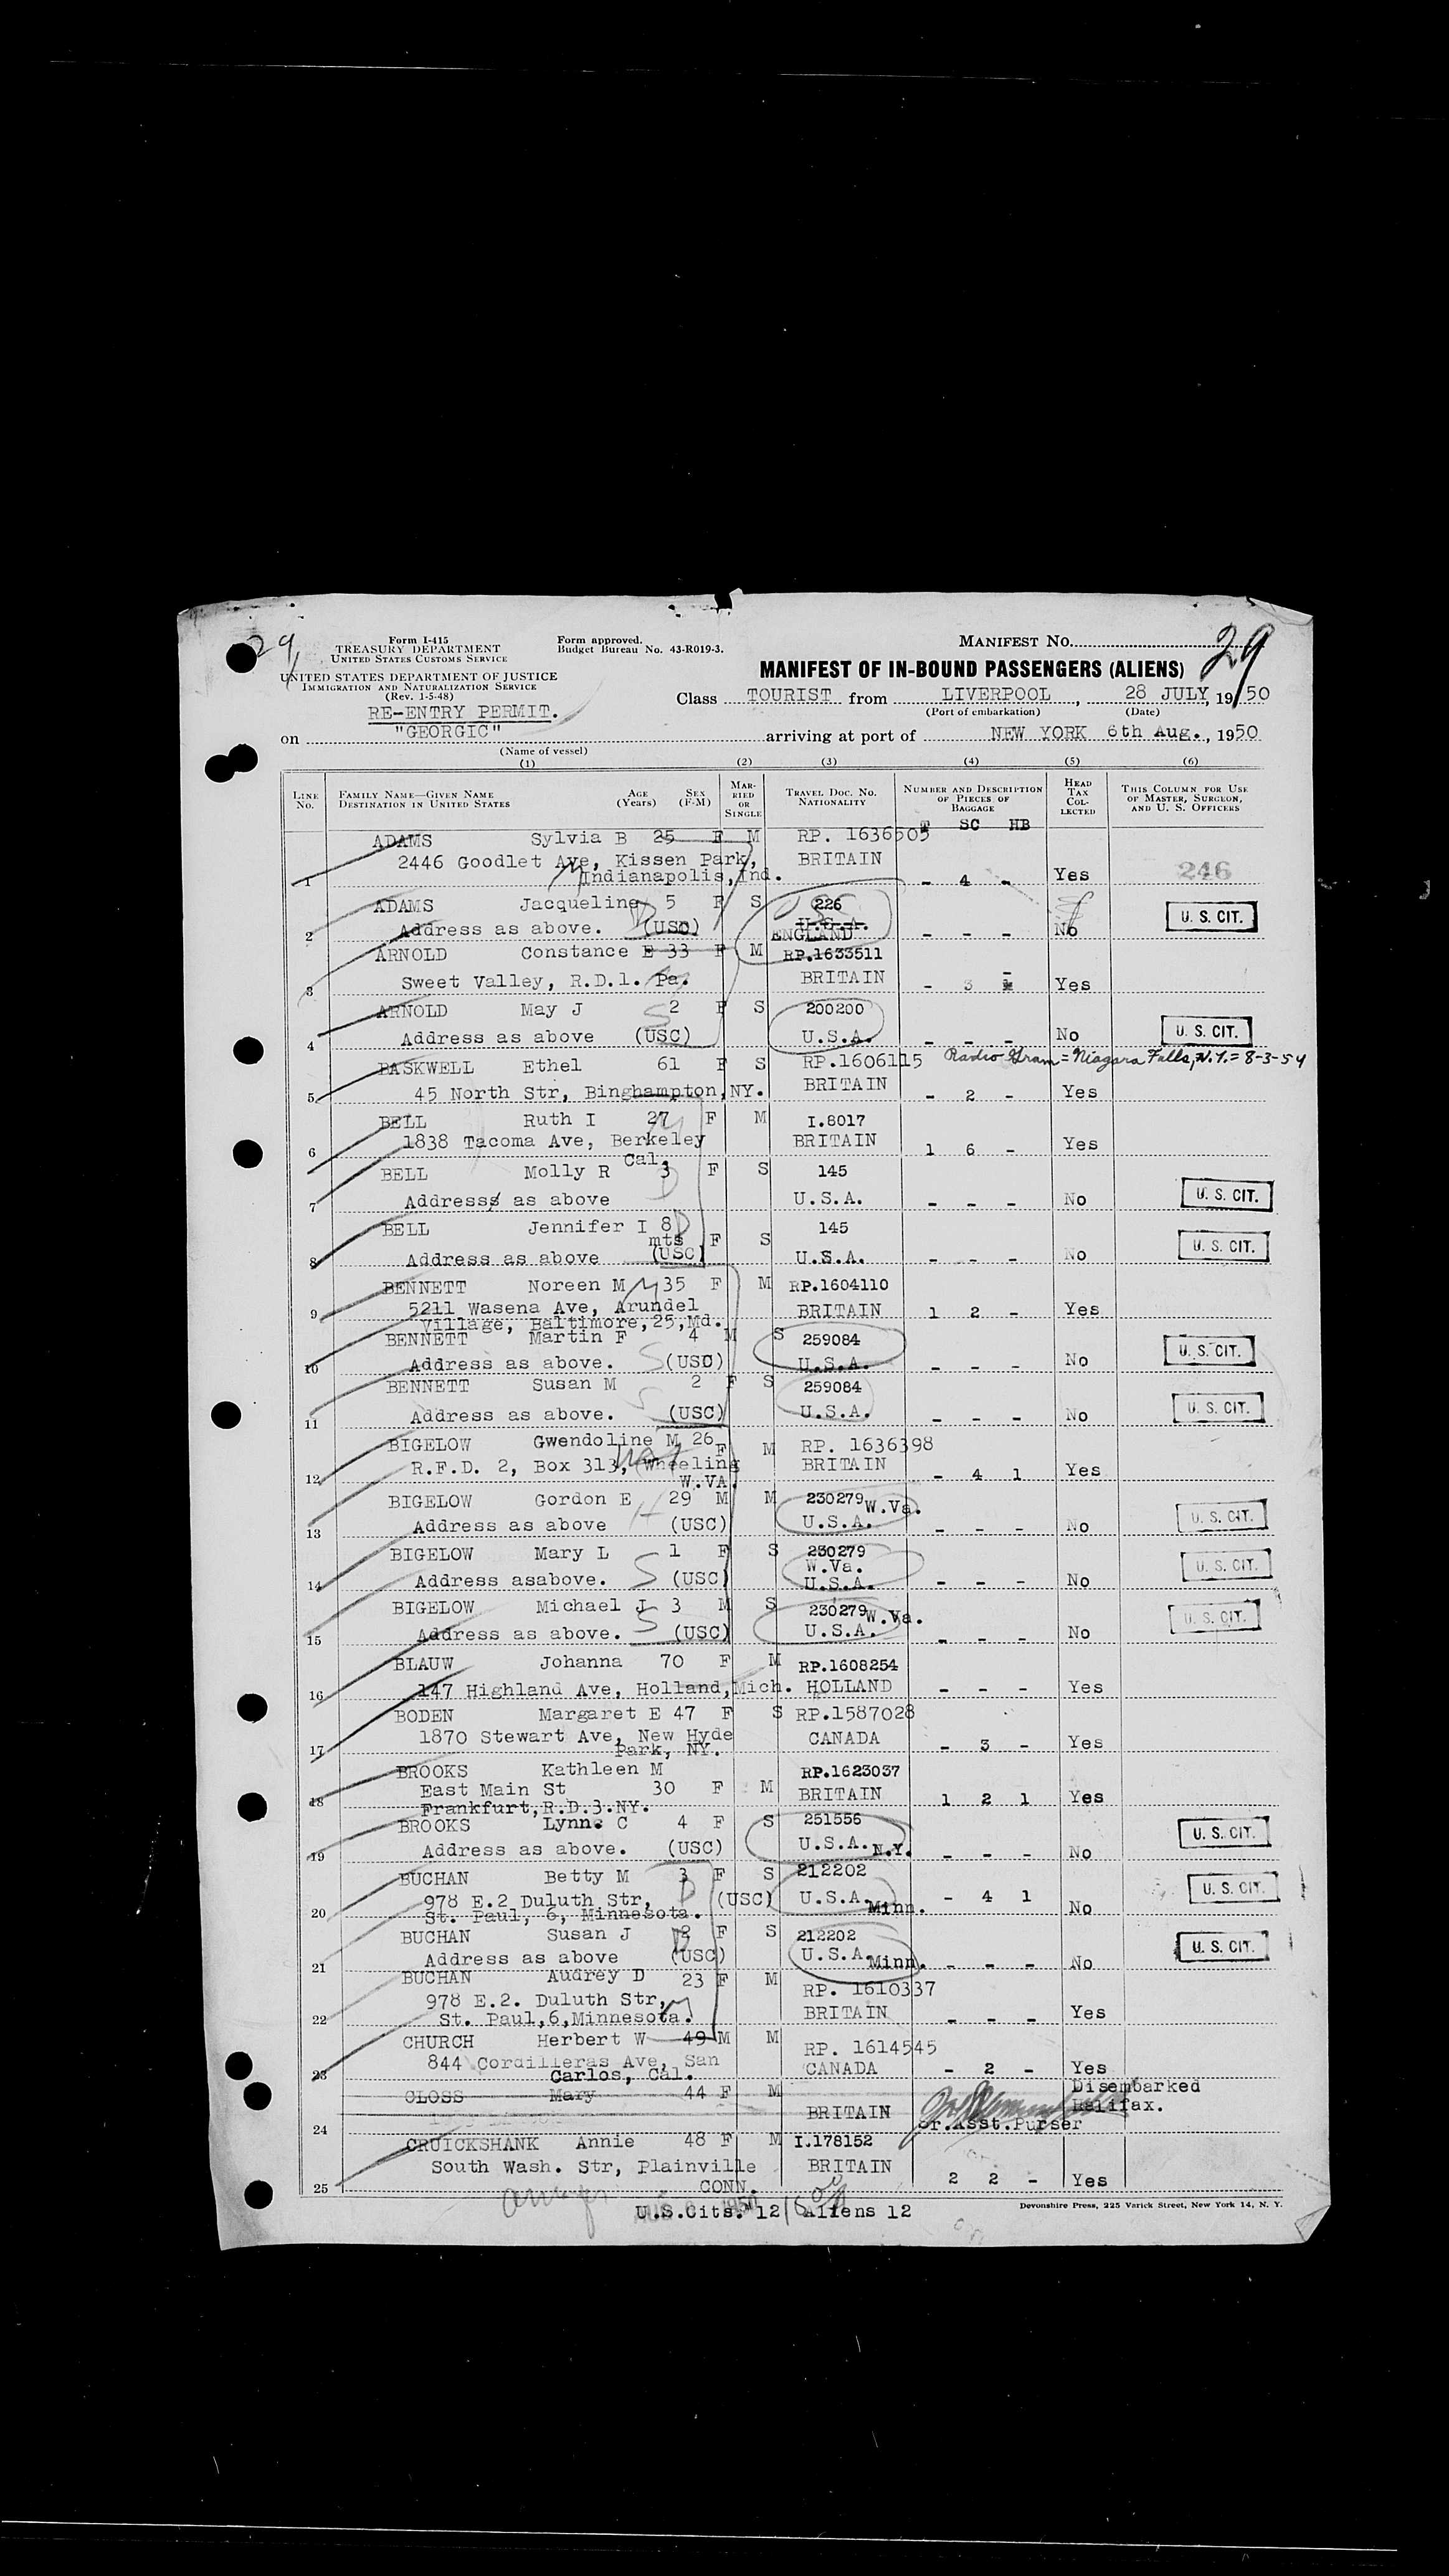 29
Form I-415
TREASURY DEPARTMENT
UNITED STATES CUSTOMS SERVICE
Form approved.
Budget Bureau No. 43-R019-3.
MANIFEST No. 29
UNITED STATES DEPARTMENT OF JUSTICE
IMMIGRATION AND NATURALIZATION SERVICE
(Rev. 1-5-48)
MANIFEST OF IN-BOUND PASSENGERS (ALIENS)
RE-ENTRY PERMIT.
Class TOURIST from LIVERPOOL, 28 JULY, 1950
(Port of embarkation) (Date)
on "GEORGIC" arriving at port of NEW YORK 6th Aug., 1950
(Name of vessel)
(1) (2) (3) (4) (5) (6)
LINE No. FAMILY NAME—GIVEN NAME DESTINATION IN UNITED STATES AGE (Years) SEX (F-M) MARRIED OR SINGLE TRAVEL DOC. NO. NATIONALITY NUMBER AND DESCRIPTION OF PIECES OF BAGGAGE HEAD TAX COLLECTED THIS COLUMN FOR USE OF MASTER, SURGEON, AND U. S. OFFICERS
T SC HB
ADAMS Sylvia B 25 F M RP. 1636505
2446 Goodlet Ave, Kissen Park, BRITAIN
1 Indianapolis, Ind. - 4 - Yes 246
ADAMS Jacqueline 5 F S 226
U.S.A.
2 Address as above. (USC) ENGLAND - - - No U. S. CIT.
ARNOLD Constance E 33 F M RP.1633511
3 Sweet Valley, R.D.1. Pa. BRITAIN - 3 Yes
ARNOLD May J 2 F S 200200
4 Address as above (USC) U.S.A. - - - No U. S. CIT.
BASKWELL Ethel 61 F S RP.1606115 Radio Gram = Niagara Falls, N.Y. = 8-3-54
5 45 North Str, Binghampton, NY. BRITAIN - 2 - Yes
BELL Ruth I 27 F M I.8017
6 1838 Tacoma Ave, Berkeley Cal. BRITAIN 1 6 - Yes
BELL Molly R 3 F S 145
7 Address as above U.S.A. - - - No U. S. CIT.
BELL Jennifer I 8 mts F S 145
8 Address as above (USC) U.S.A. - - - No U. S. CIT.
BENNETT Noreen M 35 F M RP.1604110
9 5211 Wasena Ave, Arundel BRITAIN 1 2 - Yes
Village, Baltimore,25,Md.
BENNETT Martin F 4 M S 259084
10 Address as above. (USC) U.S.A. - - - No U. S. CIT.
BENNETT Susan M 2 F S 259084
11 Address as above. (USC) U.S.A. - - - No U. S. CIT.
BIGELOW Gwendoline M 26 F M RP. 1636398
12 R.F.D. 2, Box 313, Wheeling W.VA. BRITAIN - 4 1 Yes
BIGELOW Gordon E 29 M M 230279 W.Va.
13 Address as above (USC) U.S.A. - - - No U. S. CIT.
BIGELOW Mary L 1 F S 230279
W.Va.
14 Address asabove. S (USC) U.S.A. - - - No U. S. CIT.
BIGELOW Michael J 3 M S 230279 W.Va.
15 Address as above. S (USC) U.S.A. - - - No U. S. CIT.
BLAUW Johanna 70 F M RP.1608254
16 147 Highland Ave, Holland,Mich. HOLLAND - - - Yes
BODEN Margaret E 47 F S RP.1587028
17 1870 Stewart Ave, New Hyde Park, NY. CANADA - 3 - Yes
BROOKS Kathleen M RP.1623037
18 East Main St 30 F M BRITAIN 1 2 1 Yes
Frankfurt,R.D.3.NY.
BROOKS Lynne C 4 F S 251556
19 Address as above. (USC) U.S.A. N.Y. - - - No U. S. CIT.
BUCHAN Betty M 3 F S 212202
20 978 E.2 Duluth Str, (USC) U.S.A. Minn. - 4 1 No U. S. CIT.
St. Paul, 6, Minnesota.
BUCHAN Susan J 2 F S 212202
21 Address as above (USC) U.S.A. Minn. - - - No U. S. CIT.
BUCHAN Audrey D 23 F M RP. 1610337
978 E.2. Duluth Str,
22 St. Paul,6,Minnesota. BRITAIN - - - Yes
CHURCH Herbert W 49 M M RP. 1614545
23 844 Cordilleras Ave, San Carlos, Cal. CANADA - 2 - Yes
CLOSS Mary 44 F M Disembarked
BRITAIN Halifax.
24 Sr.Asst.Purser
CRUICKSHANK Annie 48 F M I.178152
South Wash. Str, Plainville BRITAIN
25 CONN. 2 2 - Yes
U.S.Cits. 12 Aliens 12
Devonshire Press, 225 Varick Street, New York 14, N. Y.